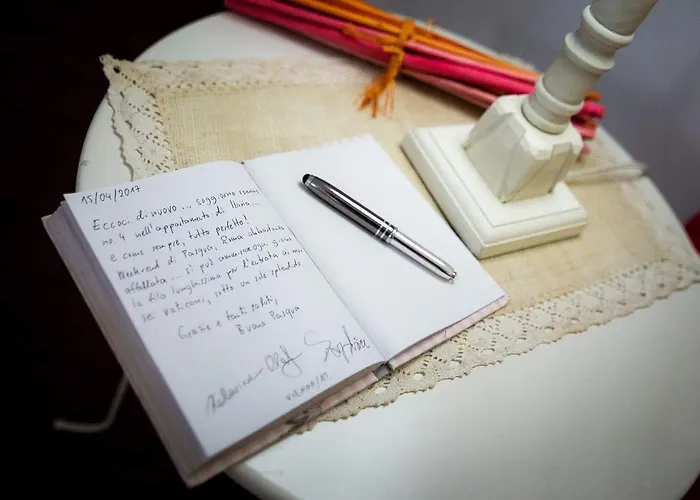 15/04/2017
Eccoci di nuovo ... soggiorno
no. 4 nell'appartamento di Ilaria...
e come sempre, tutto perfetto!
Weekend di Pasqua, Roma abbastanza
affollata ... si può immaginare
la fila lunghissima per l'entrata ai mu-
sei vaticani, sotto un sole splendido
Grazie e tanti saluti,
Buona Pasqua
VIENNA/AT